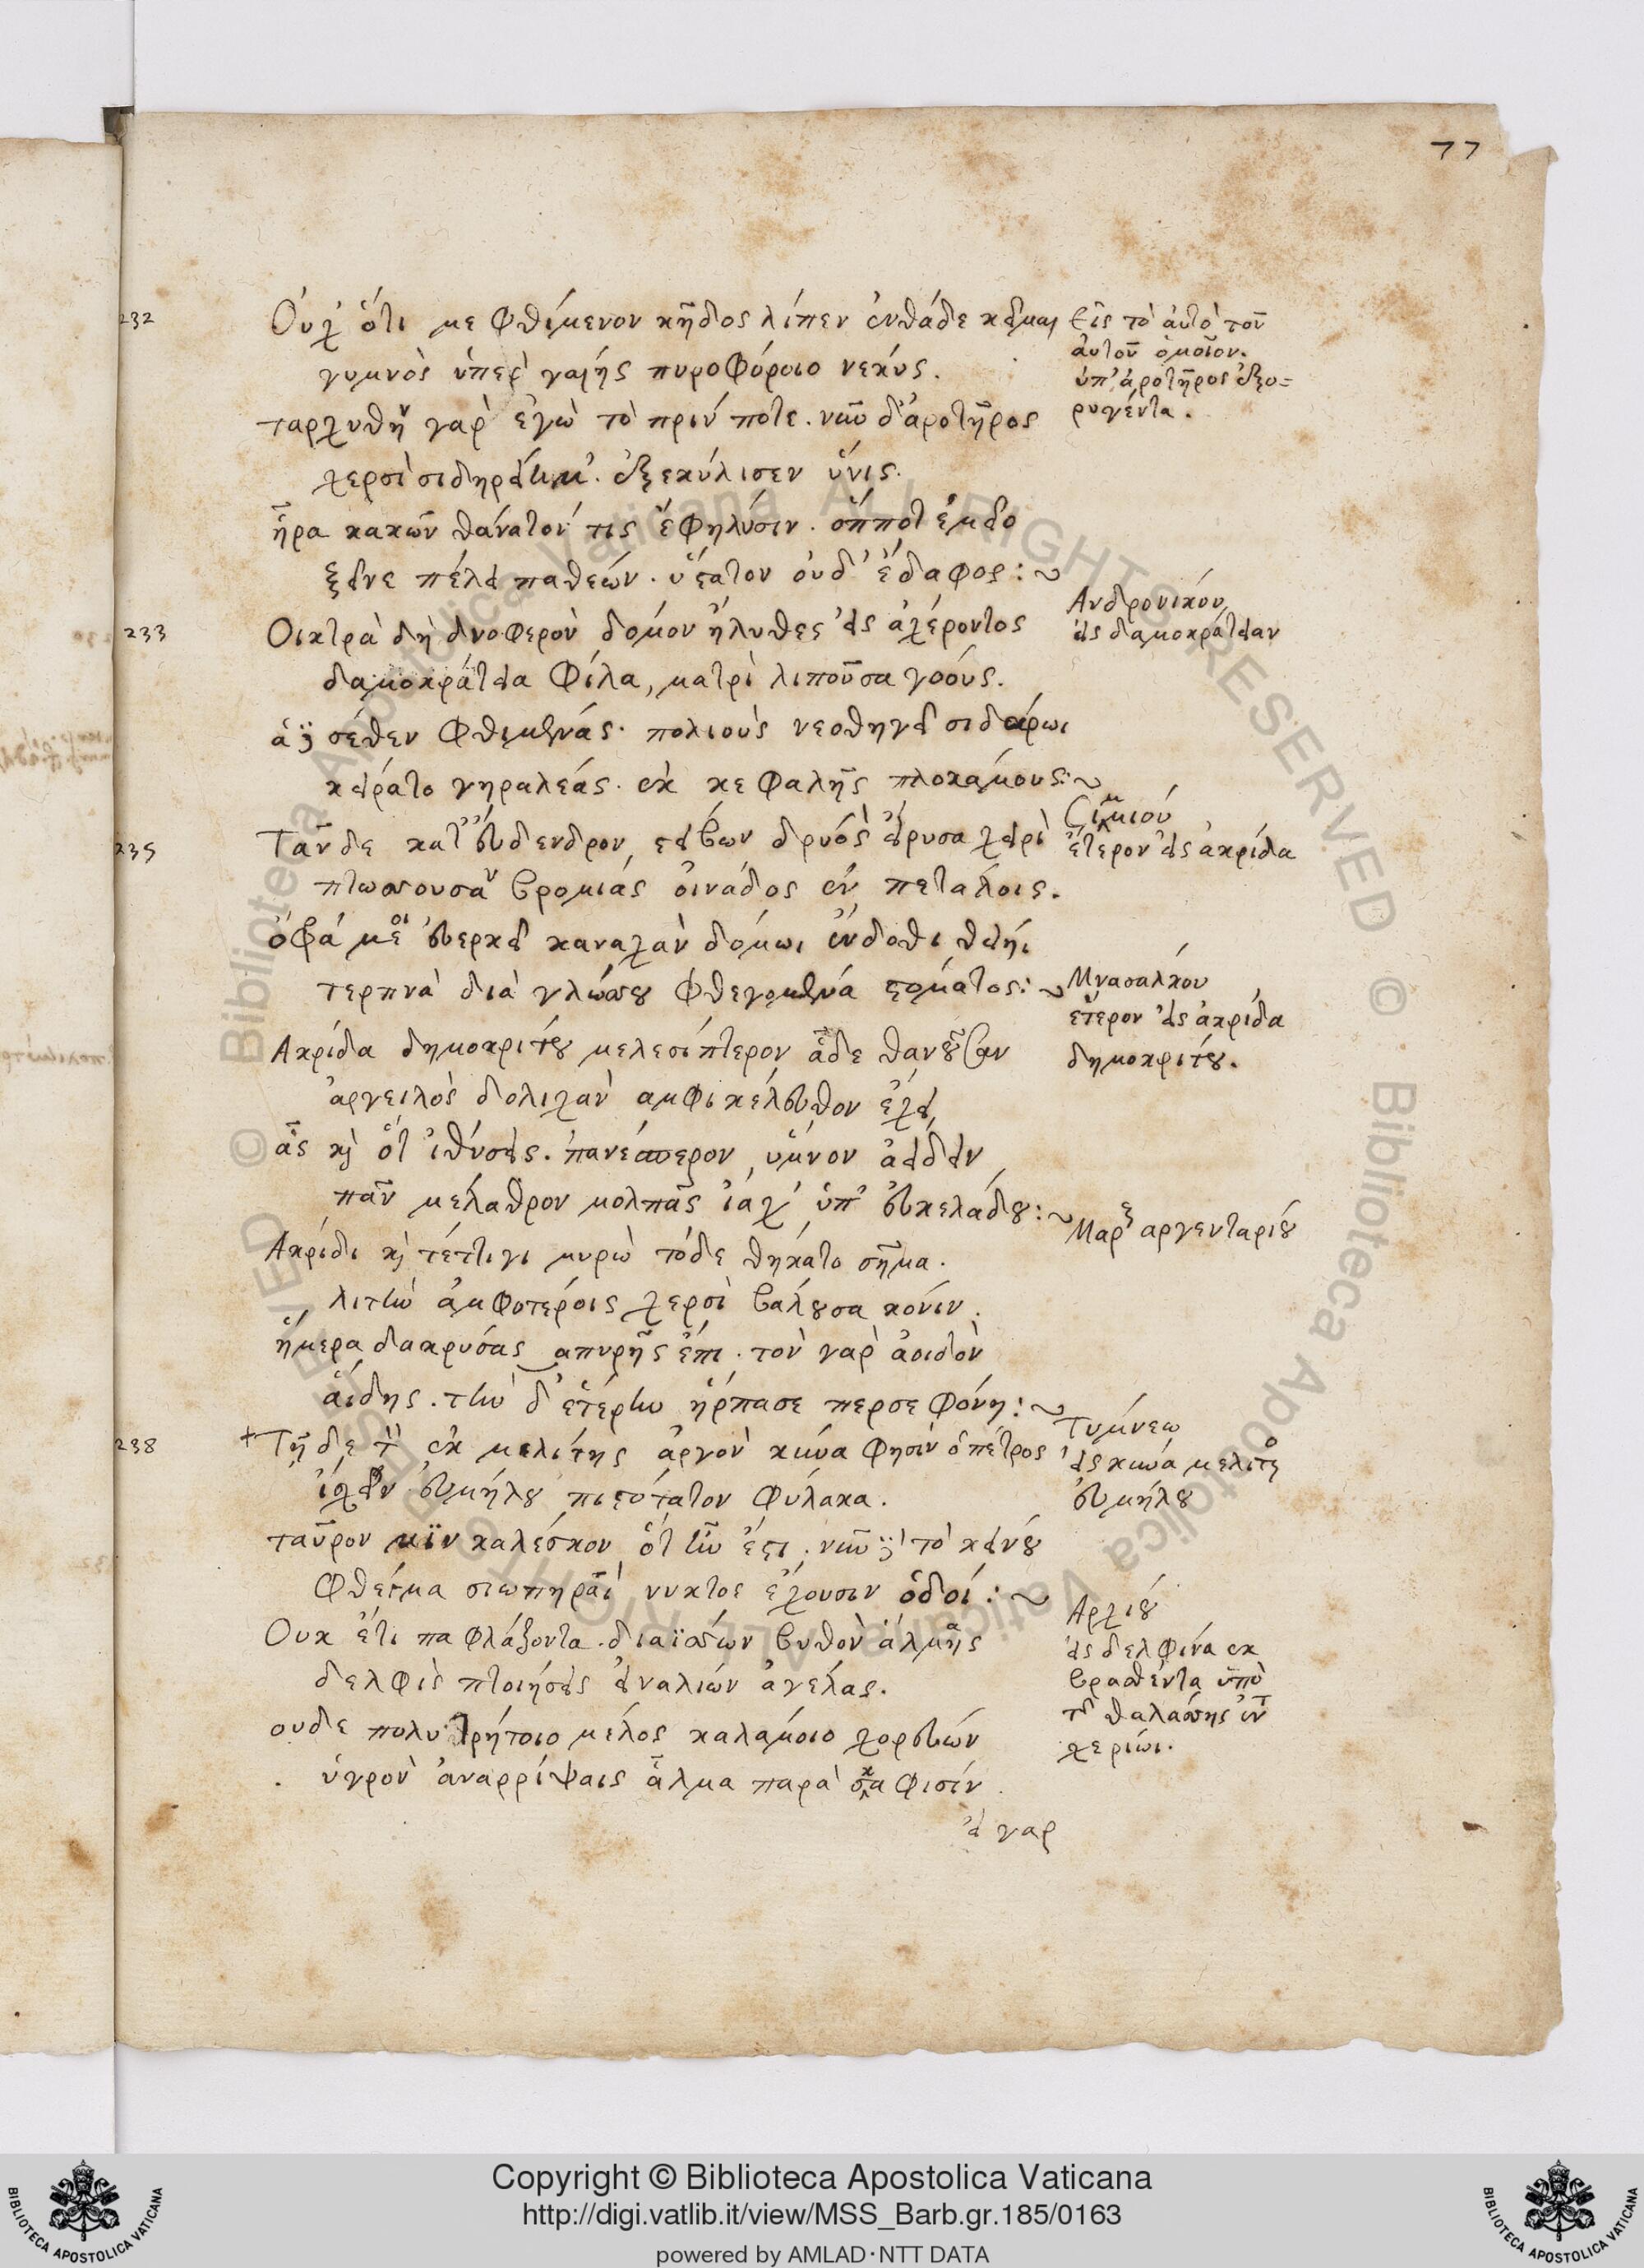 77
232 Οὐχ ὅτι με φθίμενον κῆδος λίπεν ἐνθάδε κεῖμαι
γυμνὸς ὑπὲρ γαίης πυροφόροιο νέκυς.
ταρχύθην γὰρ ἐγὼ τὸ πρίν ποτε. νῦν δ' ἀροτῆρος
χερσὶ σιδηρείη μ'. ἐξεκύλισεν ὕνις.
ἦρα κακῶν θάνατόν τις ἔφη λύσιν. ὁππότ' ἐμεῖο
ξεῖνε πέλει παθέων. ὕστατον οὐδ' ἔδαφος:~
Εἰς τὸ αὐτὸ τοῦ
αὐτοῦ ὅμοιον.
ὑπ' ἀροτῆρος ἐξο=
ρυγέντα.
233 Οικτρὰ δὴ δνοφερὸν δόμον ἤλυθες εἰς ἀχέροντος
δαμοκράτεια φίλα, ματρὶ λιποῦσα γόους.
ἁ δὲ σέθεν φθιμένας. πολιοὺς νεοθηγεῖ σιδάρωι
κείρατο γηραλέας. ἐκ κεφαλῆς πλοκάμους:~
Ανδρονίκου
εἰς δαμοκράτειαν
235 Τᾶνδε κατ' εὔδενδρον στείβων δρυὸς εἴρυσα χειρὶ
πτώσσουσαν βρομίας οἰνάδος ἐν πετάλοις.
ὄφρα μοι εὐερκεῖ καναχὰν δόμωι ἔνδοθι θείηι
τερπνὰ διὰ γλώσσου φθεγγομένα στόματος:~
Σιμμίου
ἕτερον εἰς ἀκρίδα
Ακρίδα δημοκρίτου μελεσίπτερον ἅδε θανοῦσαν
ἀργειλὸς δολιχὰν αμφικέλευθον ἔχει,
ἇς καὶ ὅτ' ἰθύσεις. πανέσπερον, ὕμνον ἀείδειν
πᾶν μέλαθρον μολπᾶς ἴαχ' ὑπ' εὐκελάδου:~
Μνασάλκου
ἕτερον εἰς ἀκρίδα
δημοκρίτου.
Ακρίδι καὶ τέττιγι μυρὼ τόδε θήκατο σῆμα.
λιτὴν ἀμφοτέροις χερσὶ βαλοῦσα κόνιν.
ἥμερα δακρύσας απυρῆς ἔπι. τὸν γὰρ ἀοιδὸν
ἅιδης. τὴν δ' ἑτέρην ἥρπασε περσεφόνη:~
Μαρ αργενταρίου
238 + Τῇδε τὸ ἐκ μελίτης ἀργὸν κύνα φησὶν ὁ πέτρος
ἴσχειν εὐμήλου πιστότατον φύλακα.
ταῦρον μϊν καλέσκον ὅτ' ἦν ἔτι. νῦν δὲ τὸ κείνου
φθέγμα σιωπηραὶ νυκτὸς ἔχουσιν ὁδοί:~
Τυμνέω
εἰς κύνα μελιτ
εὐμήλου
Ουκ έτι παφλάζοντα. διαϊσσων βυθὸν ἅλμης
δελφὶς πτοιήσεις εἰναλίων ἀγέλας.
ουδε πολυτρήτοιο μέλος καλάμοιο χορεύων
ὑγρὸν ἀναρρίψαις ἅλμα παρὰ σκαφισίν.
Αρχίου
εἰς δελφῖνα ἐκ
βρασθέντα ὑπὸ
τῆς θαλάσσης ἐν
χερίωι.
εἰ γαρ
Copyright © Biblioteca Apostolica Vaticana
http://digi.vatlib.it/view/MSS_Barb.gr.185/0163
powered by AMLAD·NTT DATA
BIBLIOTECA APOSTOLICA VATICANA
BIBLIOTECA APOSTOLICA VATICANA
© Biblioteca Apostolica Vaticana ALL RIGHTS RESERVED © Biblioteca Apostolica Vaticana ALL RIGHTS RESERVED